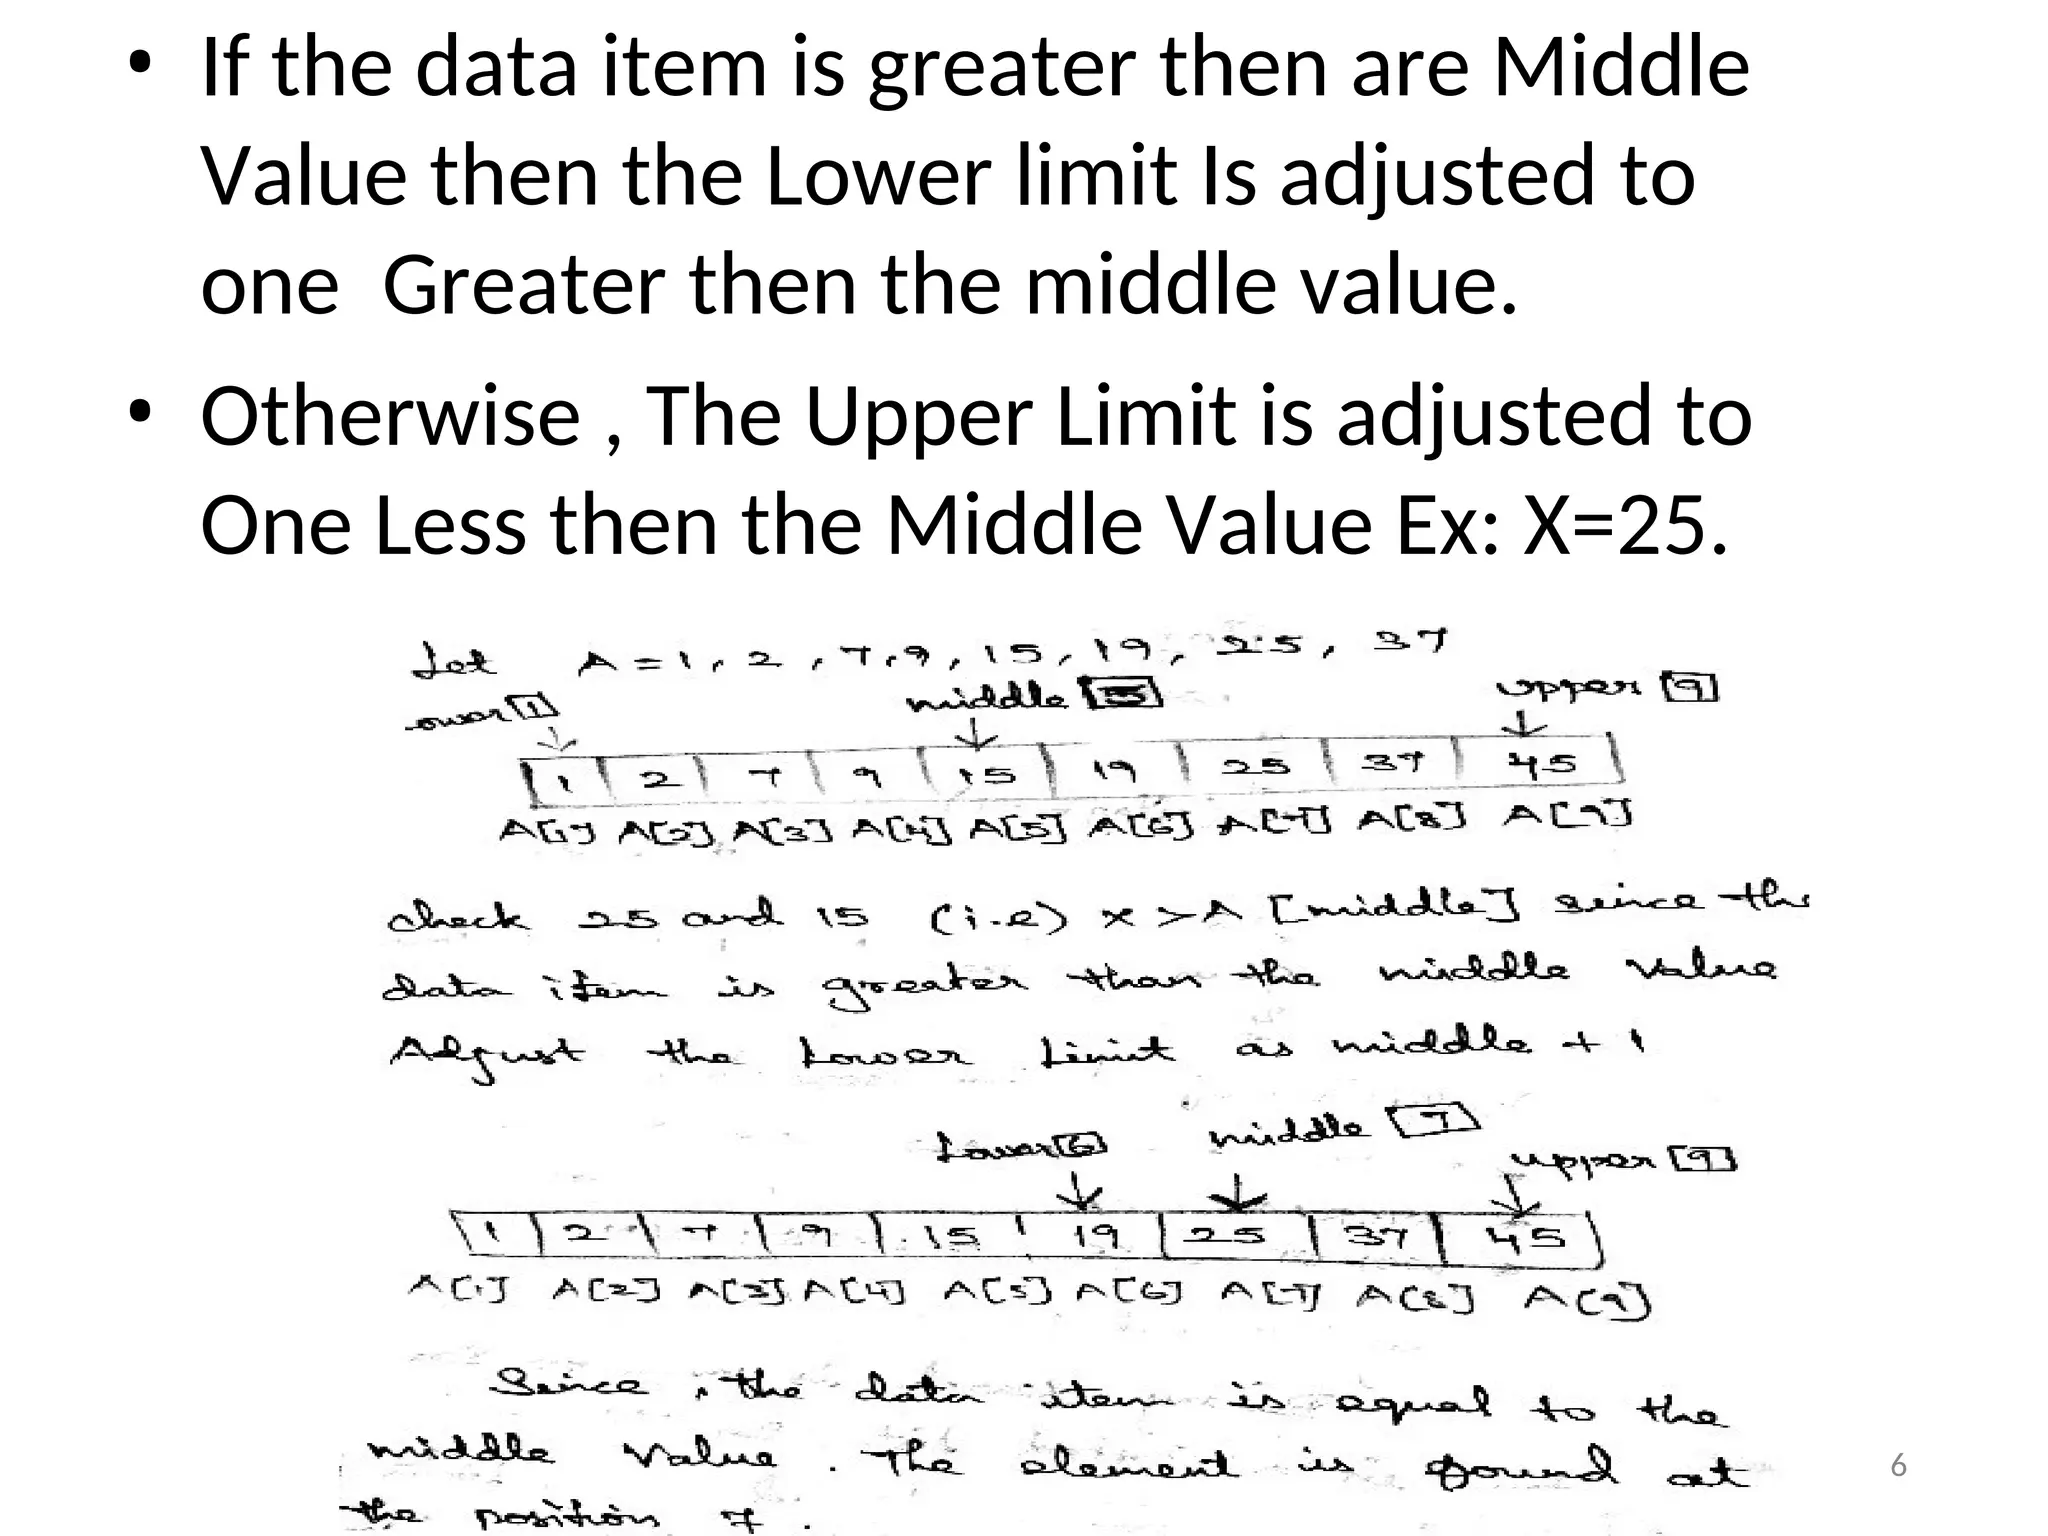 • If the data item is greater then are Middle
Value then the Lower limit Is adjusted to
one  Greater then the middle value.
• Otherwise , The Upper Limit is adjusted to
One Less then the Middle Value Ex: X=25.
Let A = 1, 2, 7, 9, 15, 19, 25, 37
ower[1] middle [5] upper [9]
1 2 7 9 15 19 25 37 45
A[1] A[2] A[3] A[4] A[5] A[6] A[7] A[8] A[9]
check 25 and 15 (i.e) x > A [middle] since the
data item is greater than the middle value
Adjust the Lower Limit as middle + 1
Lower[6] middle [7]
upper [9]
1 2 7 9 15 19 25 37 45
A[1] A[2] A[3] A[4] A[5] A[6] A[7] A[8] A[9]
Since, the data item is equal to the
middle value. The element is found at
the position 7.
6